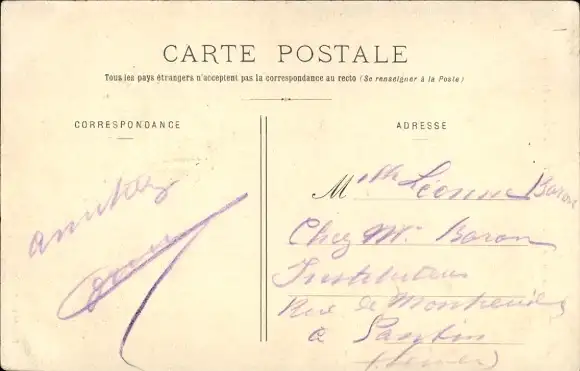 CARTE POSTALE
Tous les pays étrangers n'acceptent pas la correspondance au recto (Se renseigner à la Poste)
CORRESPONDANCE
ADRESSE
Mlle Léonne Baron
Chez Mr Baron
Instituteur
Rue de Montreuil
à Pantin
(Seine)
amitiés